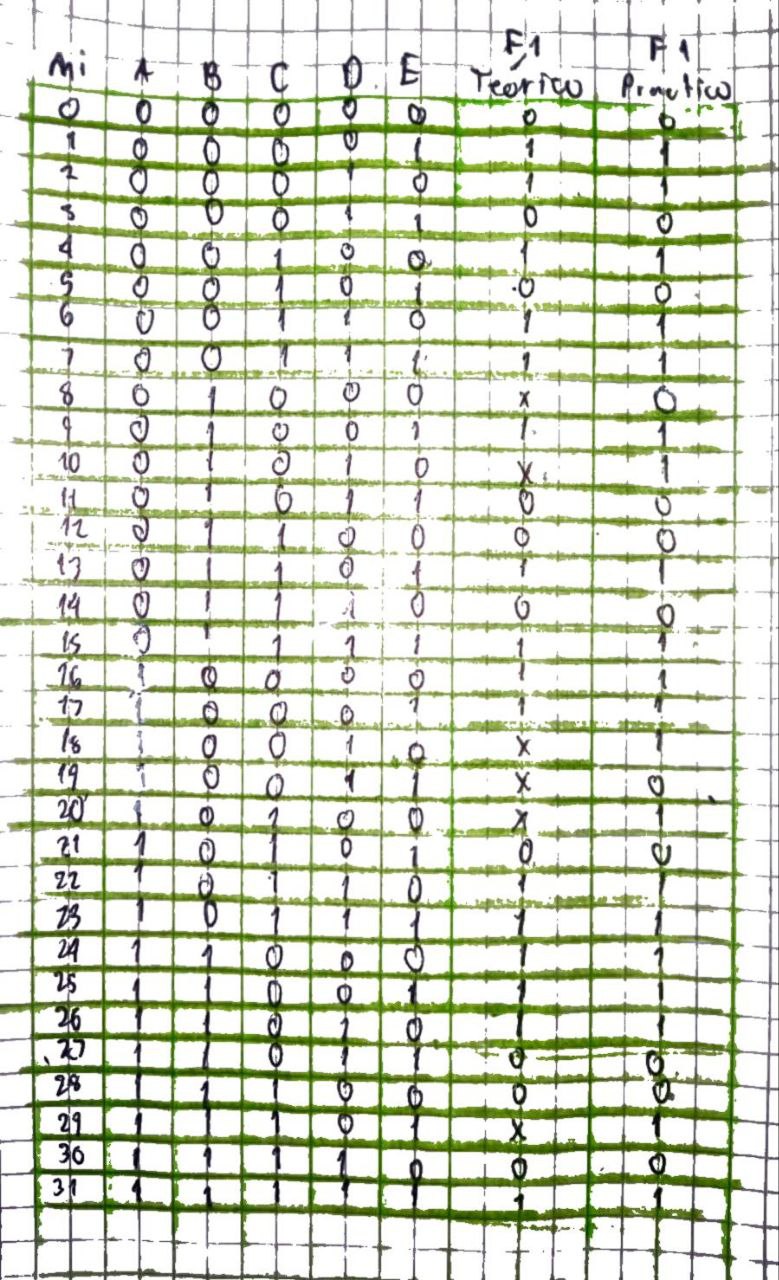 F1 F1
mi A B C D E Teórico Practico
0 0 0 0 0 0 0 0
1 0 0 0 0 1 1 1
2 0 0 0 1 0 1 1
3 0 0 0 1 1 0 0
4 0 0 1 0 0 1 1
5 0 0 1 0 1 0 0
6 0 0 1 1 0 1 1
7 0 0 1 1 1 1 1
8 0 1 0 0 0 x 0
9 0 1 0 0 1 1 1
10 0 1 0 1 0 x 1
11 0 1 0 1 1 0 0
12 0 1 1 0 0 0 0
13 0 1 1 0 1 1 1
14 0 1 1 1 0 0 0
15 0 1 1 1 1 1 1
16 1 0 0 0 0 1 1
17 1 0 0 0 1 1 1
18 1 0 0 1 0 x 1
19 1 0 0 1 1 x 0
20 1 0 1 0 0 x 1
21 1 0 1 0 1 0 0
22 1 0 1 1 0 1 1
23 1 0 1 1 1 1 1
24 1 1 0 0 0 1 1
25 1 1 0 0 1 1 1
26 1 1 0 1 0 1 1
27 1 1 0 1 1 0 0
28 1 1 1 0 0 0 0
29 1 1 1 0 1 x 1
30 1 1 1 1 0 0 0
31 1 1 1 1 1 1 1